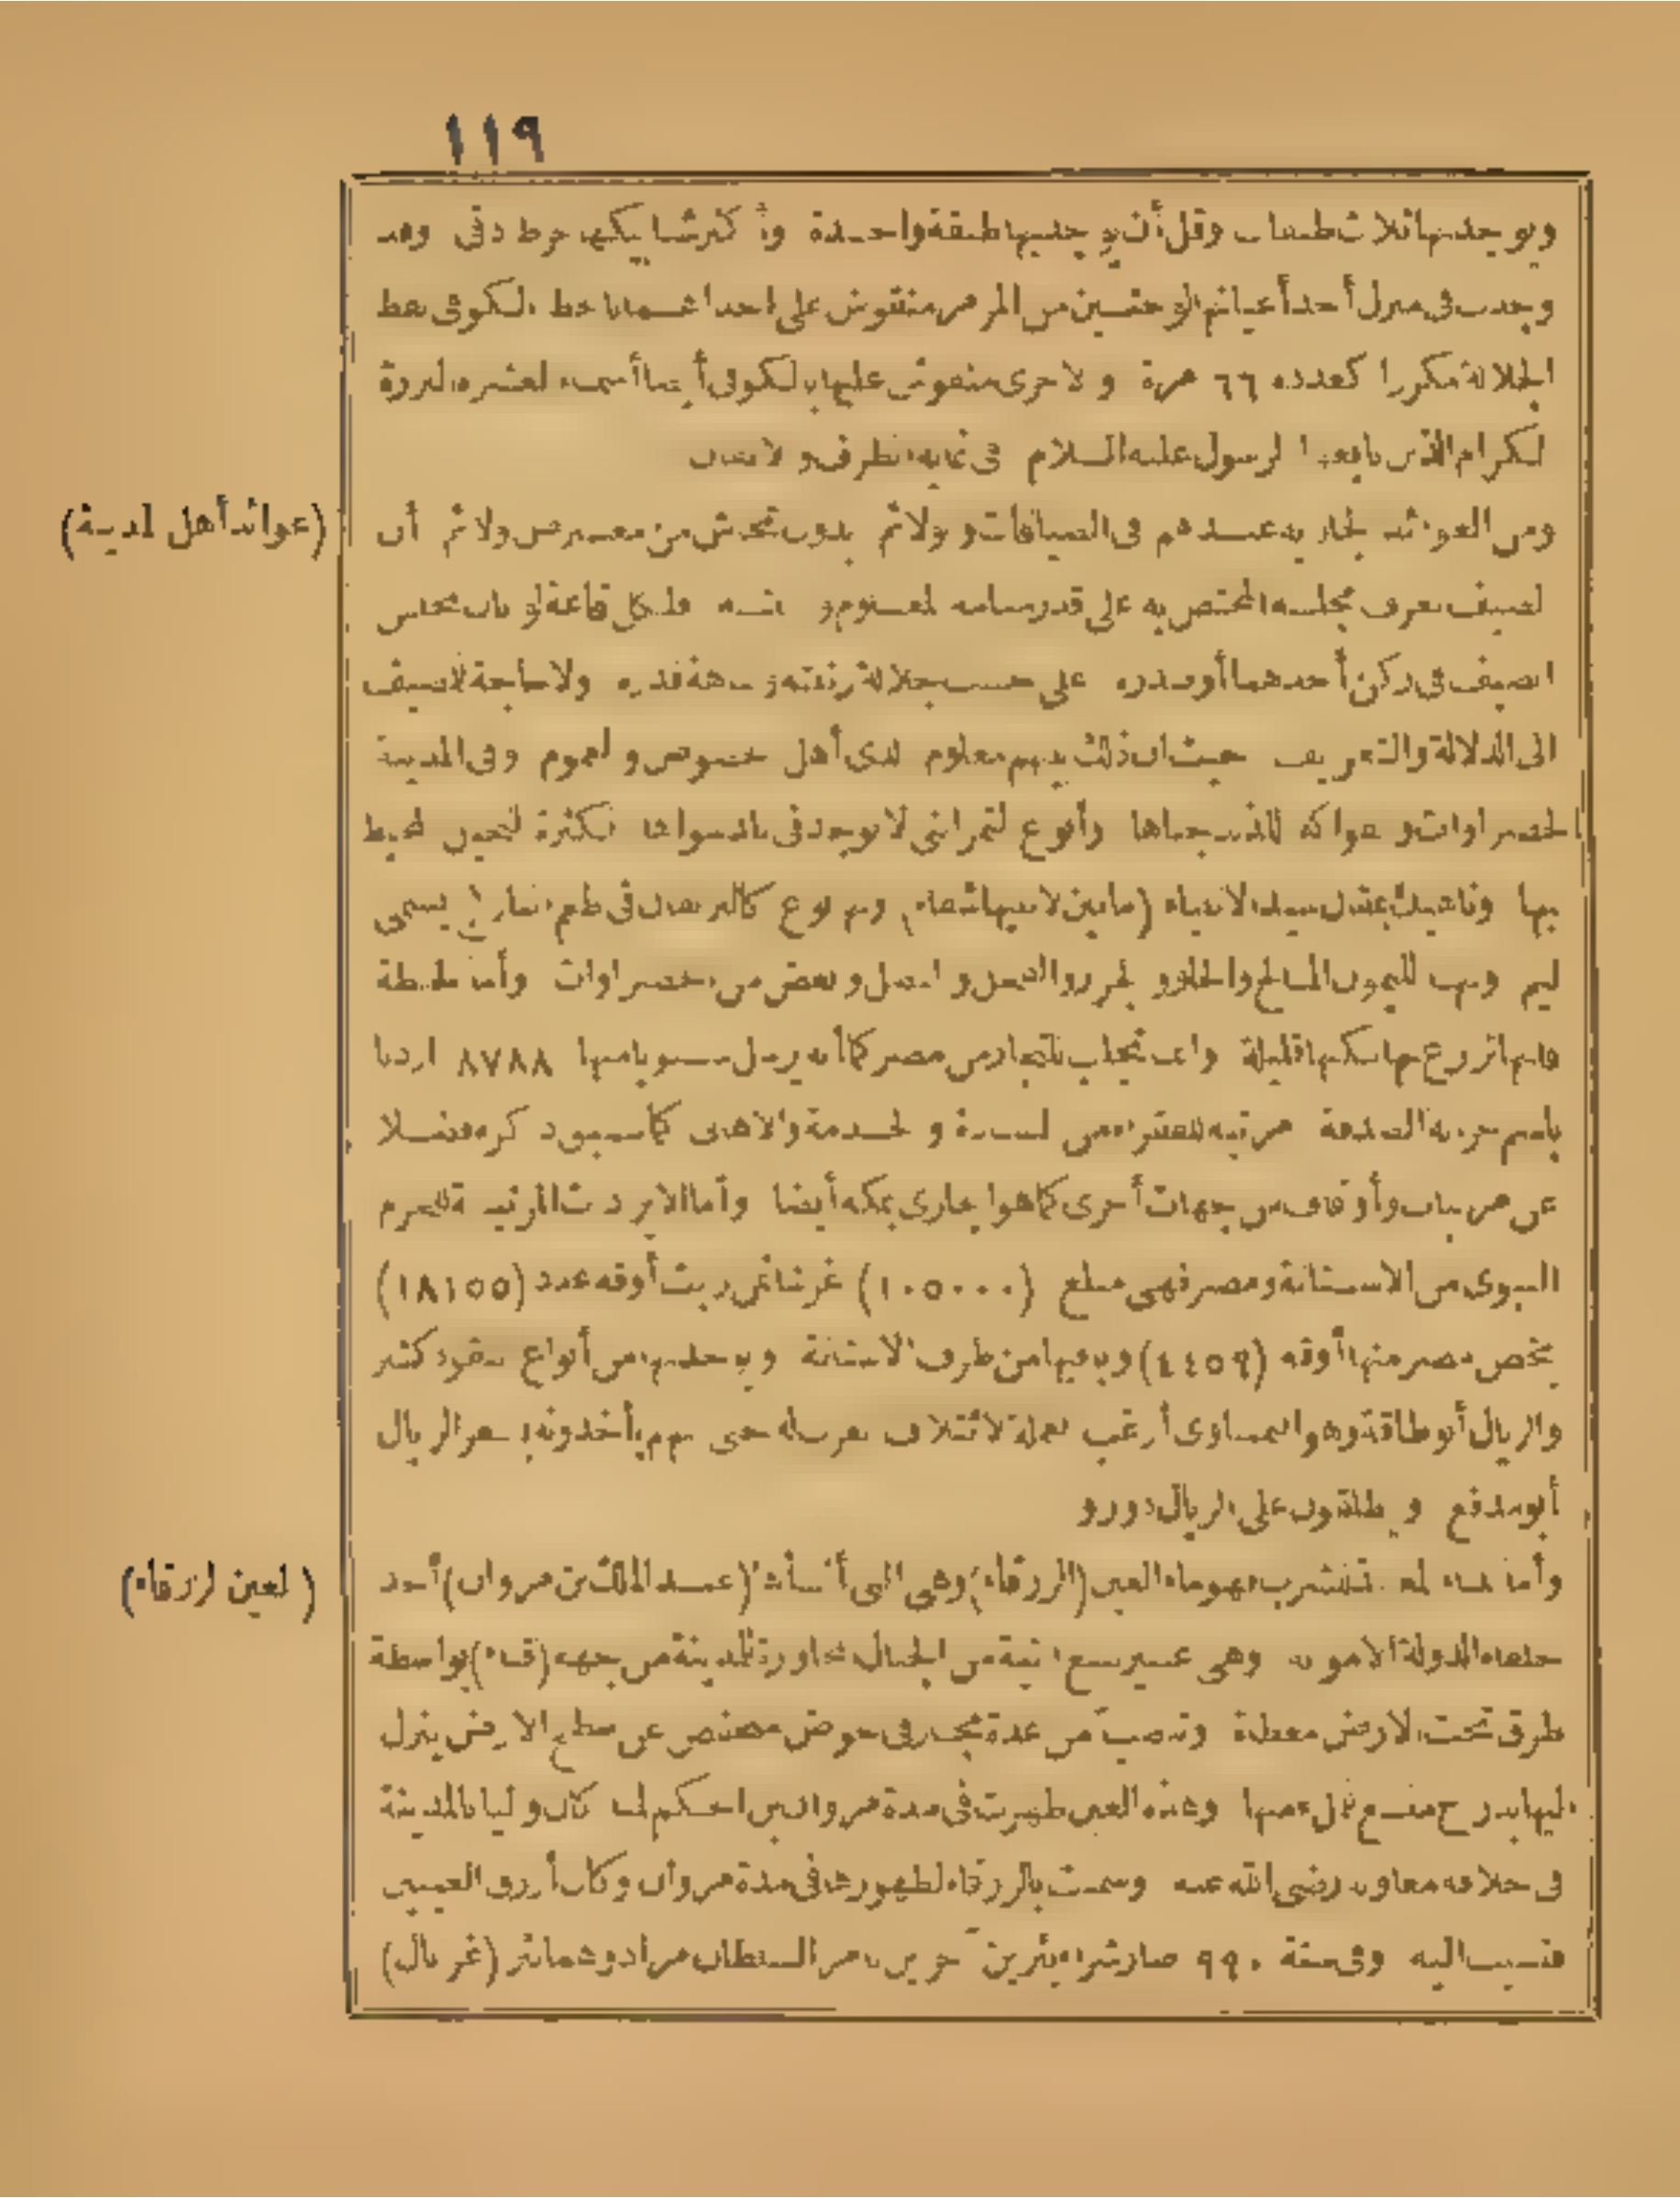 ١١٩
ويوجد بها ثلاث طبقات وقل أن يوجد بها طبقة واحدة وأكثر شبابيكها خرط دقى وقد
وجدت فى منزل أحد أعيانهم لوحتين من المرمر منقوش على احداهما بالخط الكوفى لفظ
الجلالة مكررا كعدده ٦٦ مرة والاخرى منقوش عليها بالكوفى أيضا أسماء العشرة البررة
الكرام الذين بايعوا الرسول عليه السلام فى غاية الظرف والاتقان
(عوائد أهل المدينة)
ومن العوائد الجارية عندهم فى الضيافات والولائم بدون تحاش من معترض ولا لائم أن
الضيف يعرف مجلسه المختص به على قدر مقامه المعلوم و فلكل قاعة لوانان مجلس
الضيف فى ركن أحدهما أو صدره على حسب جلالة رتبته و قدره ولا حاجة للضيف
الى الدلالة والتعريف حيث ان ذلك بينهم معلوم لدى أهل الخصوص والعموم وفى المدينة
الخضراوات والفواكه اللذيذ جناها وأنواع التمر التى لا توجد فى بلد سواها بكثرة النخيل المحيط
بها وناهيك بقول سيد الانبياء (ما بين لابتيها شفاء) وبها نوع كالبرتقال فى طعم النارنج يسمى
ليم وبها الليمون المالح والحلو والجزر والفجل والبصل وبعض من الخضراوات وأما الحنطة
فانها تزرع بها لكنها قليلة وانما تجلب للتجار من مصر كما أنه يرسل سنويا منها ٨٧٨٨ اردبا
باسم جراية الصدقة مرتبة للفقراء من السادة والخدمة والاهالى كما سيعود ذكره فضلا
عن مرتبات وأوقاف من جهات أخرى كما هو الجارى بمكه أيضا وأما الايرادات المرتبة للحرم
النبوى من الاستانة ومصر فهى مبلغ (١٠٥٠٠٠) غرشا غير زيت أوقه عدد (١٨١٥٥)
يخص مصر منها أوقه (٤٤٥٩) وباقيها من طرف الاستانة ويوجد بها من أنواع النقود كثير
والريال أبوطاقة وهو النمساوى أرغب عملة لائتلاف العرب له حتى انهم يأخذونه بسعر الريال
أبومدفع ويطلقون على الريال دورو
(العين الزرقاء)
وأما الماء المعتاد للشرب فهو ماء العين (الزرقاء) وهى التى أنشأها (عبد الملك بن مروان) أحد
خلفاء الدولة الاموية وهى عين تنبع آتية من الجبال المجاورة للمدينة من جهة (قباء) بواسطة
طرق تحت الارض مغطاة وتنصب من عدة مجار فى حوض منخفض عن سطح الارض ينزل
اليها بدرج متسع للملء منها وهذه العين ظهرت فى مدة مروان بن الحكم لما كان واليا بالمدينة
فى خلافة معاوية رضى الله عنه وسميت بالزرقاء لظهورها فى مدة مروان وكان أزرق العينين
فنسبت اليه وفى سنة ٩٩٠ صار شراء بئرين آخرين بأمر السلطان مراد وهما بئر (غربال)